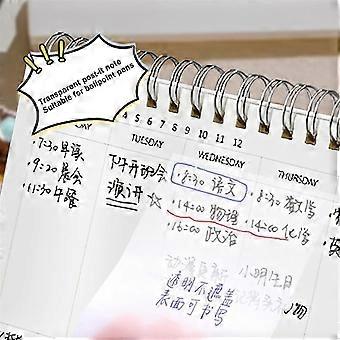 Transparent post-it note
Suitable for ballpoint pens
DAY
4 5 6 7 8 9 10 11 12
TUESDAY
WEDNESDAY
THURSDAY
·7:30 早读
·9:20 晨会
·11:30 午睡
下午开班会
演讲 ☆
·8:30 语文
·14:00 物理
·16:00 政治
·8:30 数学
·14:00 化学
英
小明生日
透明不遮盖
表面可书写
物